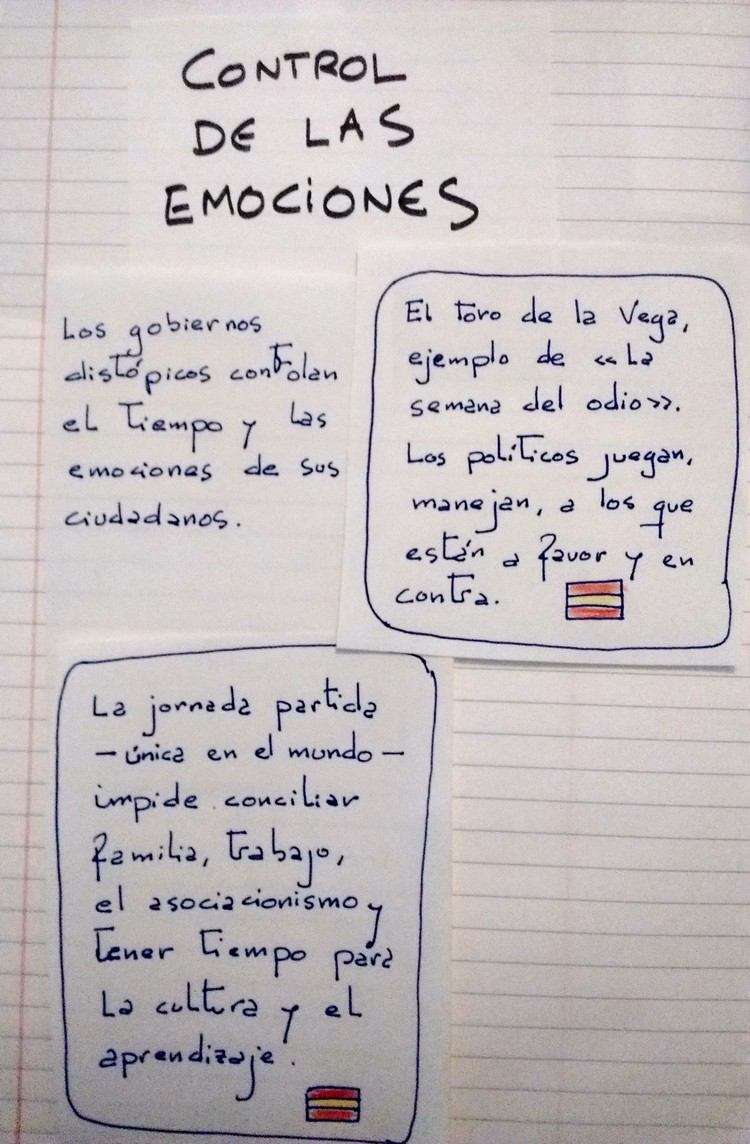 CONTROL
DE LAS
EMOCIONES
Los gobiernos
distópicos controlan
el tiempo y las
emociones de sus
ciudadanos.
El toro de la Vega,
ejemplo de «La
semana del odio».
Los políticos juegan,
manejan, a los que
están a favor y en
contra.
La jornada partida
— única en el mundo —
impide conciliar
familia, trabajo,
el asociacionismo y
tener tiempo para
la cultura y el
aprendizaje.